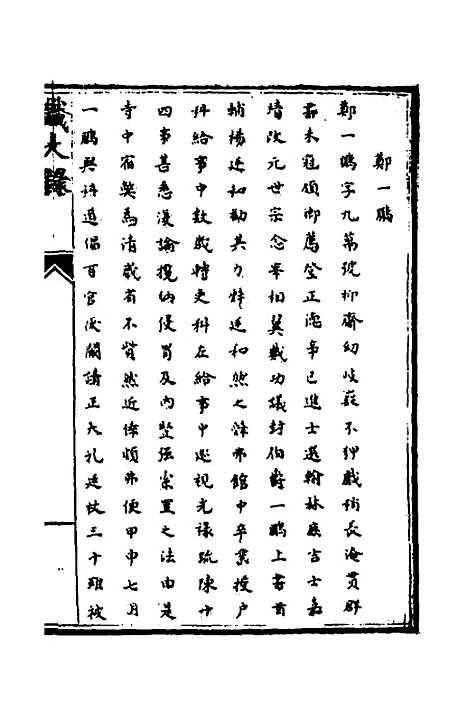 鄭一鵬
鄭一鵬字九萬號抑齋幼岐嶷不狎戲稍長淹貫群
書未冠領鄉薦登正德辛巳進士選翰林庶吉士嘉
靖改元世宗念宰相翼戴功議封伯爵一鵬上書首
輔楊廷和勸其力辭廷和然之辭弗館中卒業授戶
科給事中數歲轉吏科在給事中巡視光祿疏陳十
四事甚悉漫論攬納侵冒及內豎張索置之法由是
寺中宿弊為清歲省不貲然近倖頗弗便甲申七月
一鵬與科道倡百官伏闕請正大礼廷杖三十雖被
識大錄